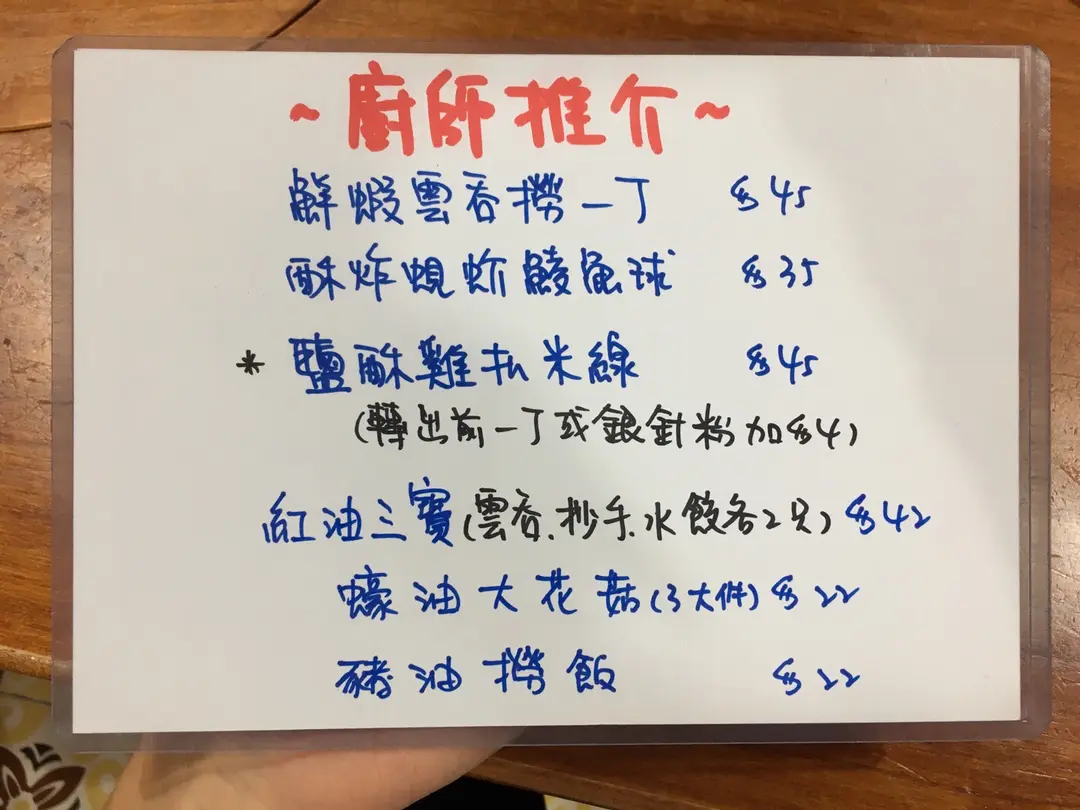 ~廚師推介~
鮮蝦雲吞撈一丁 $45
酥炸蜆蚧鯪魚球 $35
* 鹽酥雞扒米線 $45
(轉出前一丁或銀針粉加$4)
紅油三寶(雲吞.抄手.水餃各2只) $42
蠔油大花菇(3大件) $22
豬油撈飯 $22